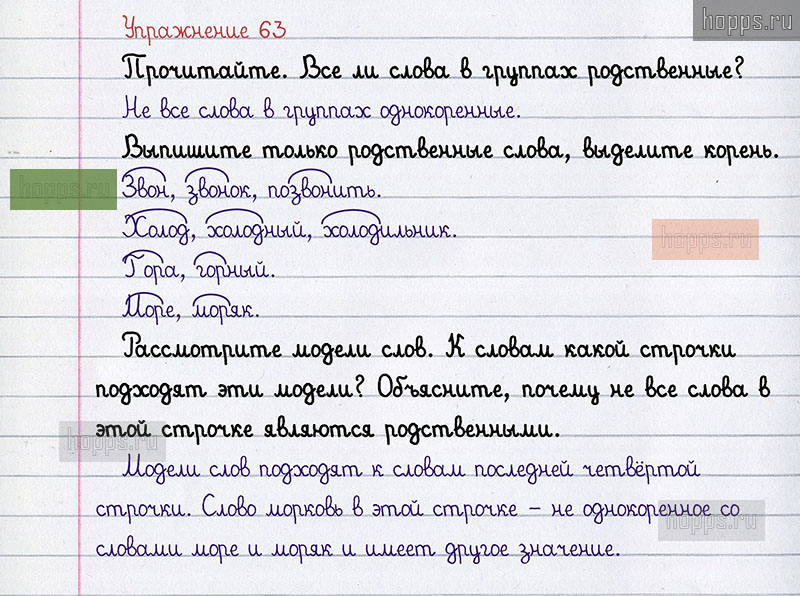 hopps.ru
Упражнение 63
Прочитайте. Все ли слова в группах родственные?
Не все слова в группах однокоренные.
Выпишите только родственные слова, выделите корень.
hopps.ru
Звон, звонок, позвонить.
Холод, холодный, холодильник.
hopps.ru
Гора, горный.
Море, моряк.
Рассмотрите модели слов. К словам какой строчки
подходят эти модели? Объясните, почему не все слова в
этой строчке являются родственными.
hopps.ru
Модели слов подходят к словам последней четвёртой
строчки. Слово морковь в этой строчке – не однокоренное со
hopps.ru
словами море и моряк и имеет другое значение.